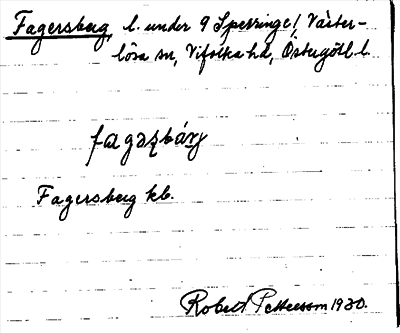 Fagersberg, l. under 9 Spettinge/, Väster-
lösa sn, Vifolka hd, Östergötl. l.
fagəʂbárj
Fagersberg kb.
Robert Pettersson 1930.